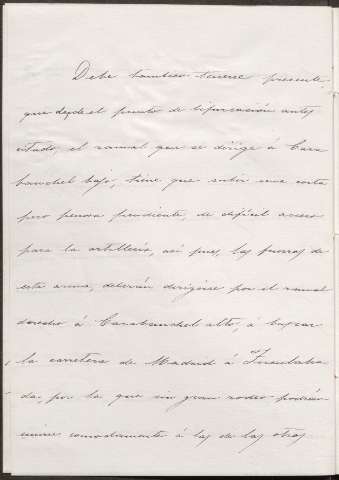 Debe tambien tenerse presente,
que desde el punto de bifurcación antes
citado, el ramal que se dirige á Cara
banchel bajo, tiene que subir una corta
pero penosa pendiente, de dificil acceso
para la artilleria, asi pues, las fuerzas de
esta arma, deberán dirigirse por el ramal
derecho á Carabanchel alto, á buscar
la carretera de Madrid á Fuenlabra
da, por la que sin gran rodeo podrán
unirse comodamente á las de las otras